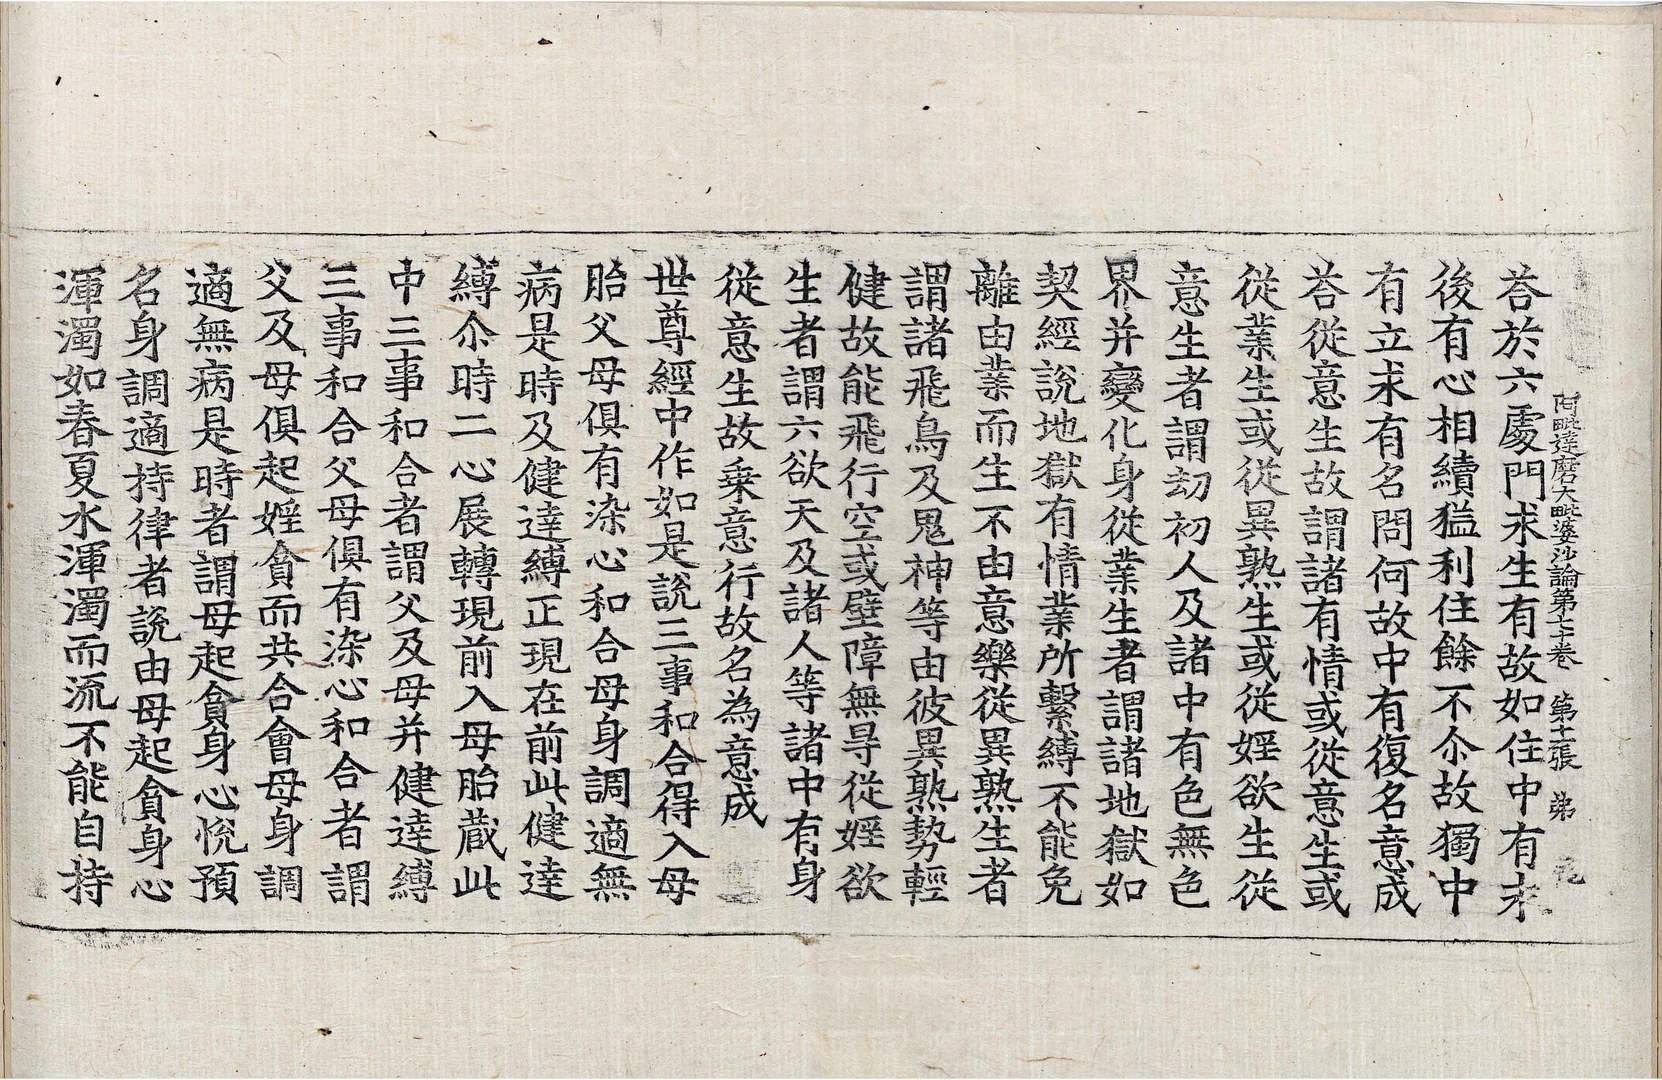 阿毗達磨大毗婆沙論第七十卷 第十一張 弟
荅於六處門求生有故如住中有末
後有心相續猛利住餘不尒故獨中
有立求有名問何故中有復名意成
荅從意生故謂諸有情或從意生或
從業生或從異熟生或從婬欲生從
意生者謂劫初人及諸中有色無色
界并變化身從業生者謂諸地獄如
契經說地獄有情業所繫縛不能免
離由業而生不由意樂從異熟生者
謂諸飛鳥及鬼神等由彼異熟勢輕
健故能飛行空或壁障無㝵從婬欲
生者謂六欲天及諸人等諸中有身
從意生故乗意行故名為意成
世尊經中作如是說三事和合得入母
胎父母俱有染心和合母身調適無
病是時及健達縛正現在前此健達
縛尒時二心展轉現前入母胎藏此
中三事和合者謂父及母并健達縛
三事和合父母俱有染心和合者謂
父及母俱起婬貪而共合會母身調
適無病是時者謂母起貪身心悅預
名身調適持律者說由母起貪身心
渾濁如春夏水渾濁而流不能自持